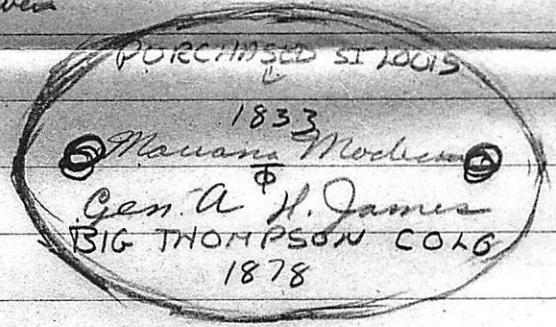 PURCHASED ST LOUIS
1833
Mariana Modena
Gen. A H. James
BIG THOMPSON COLG
1878